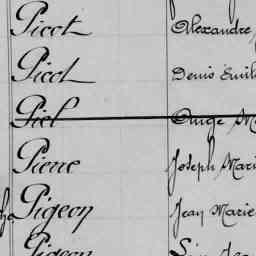 Picot Alexandre
Picot Denis Emil
Piel Ange Ma
Pierre Joseph Mari
Pigeon Jean Marie
Pigeon